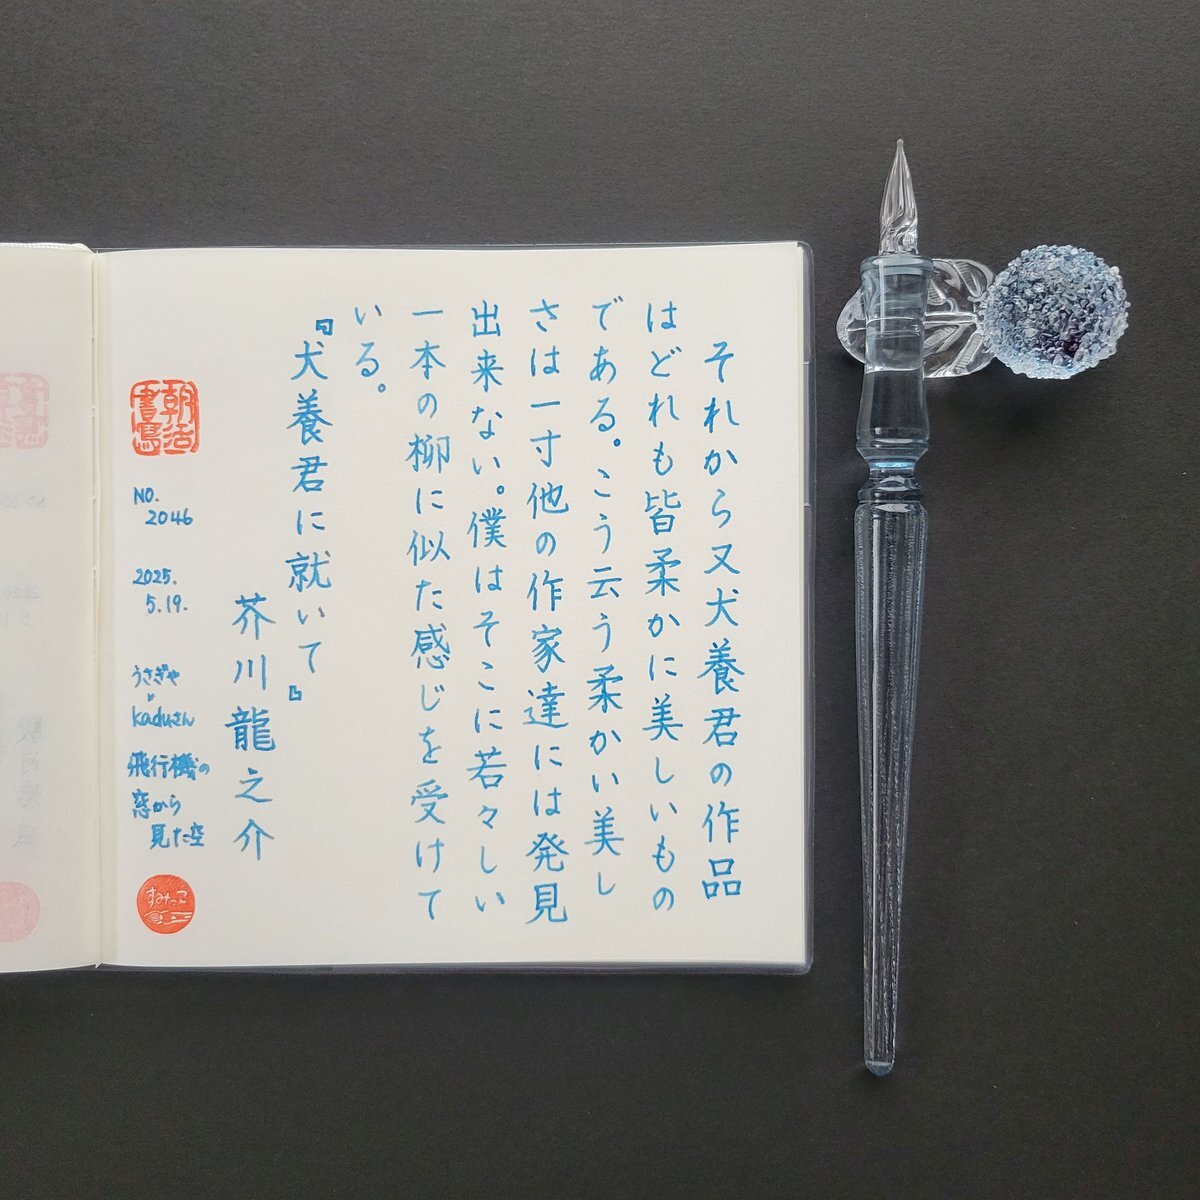 それから又犬養君の作品
はどれも皆柔かに美しいもの
である。こう云う柔かい美し
さは一寸他の作家達には発見
出来ない。僕はそこに若々しい
一本の柳に似た感じを受けて
いる。
『犬養君に就いて』
芥川龍之介
朝活
書写
NO.
2046
2025.
5.19.
うさぎや
kaduさん
飛行機の
窓から
見た空
すみっこ